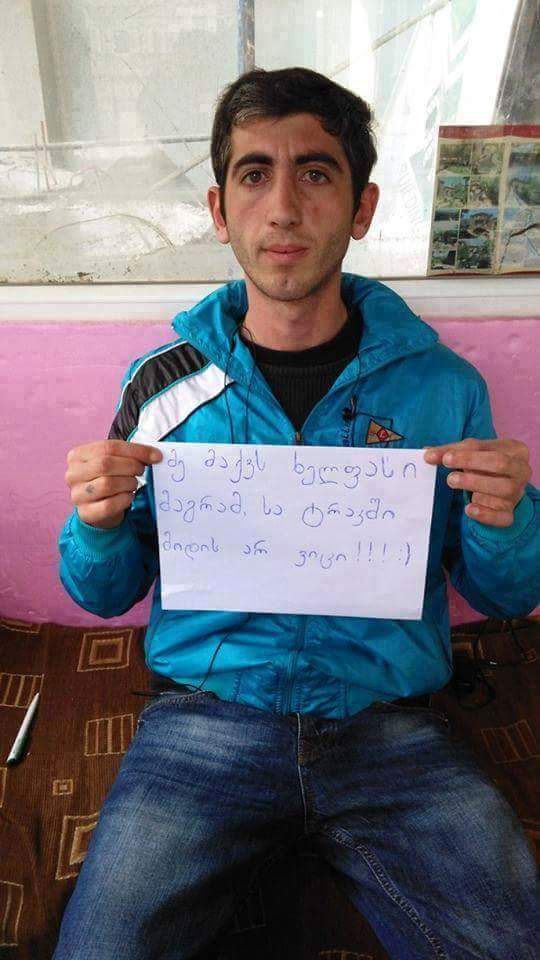 მე მაქვს ხელფასი
მაგრამ, სა ტრაკში
მიდის არ ვიცი!!! :)